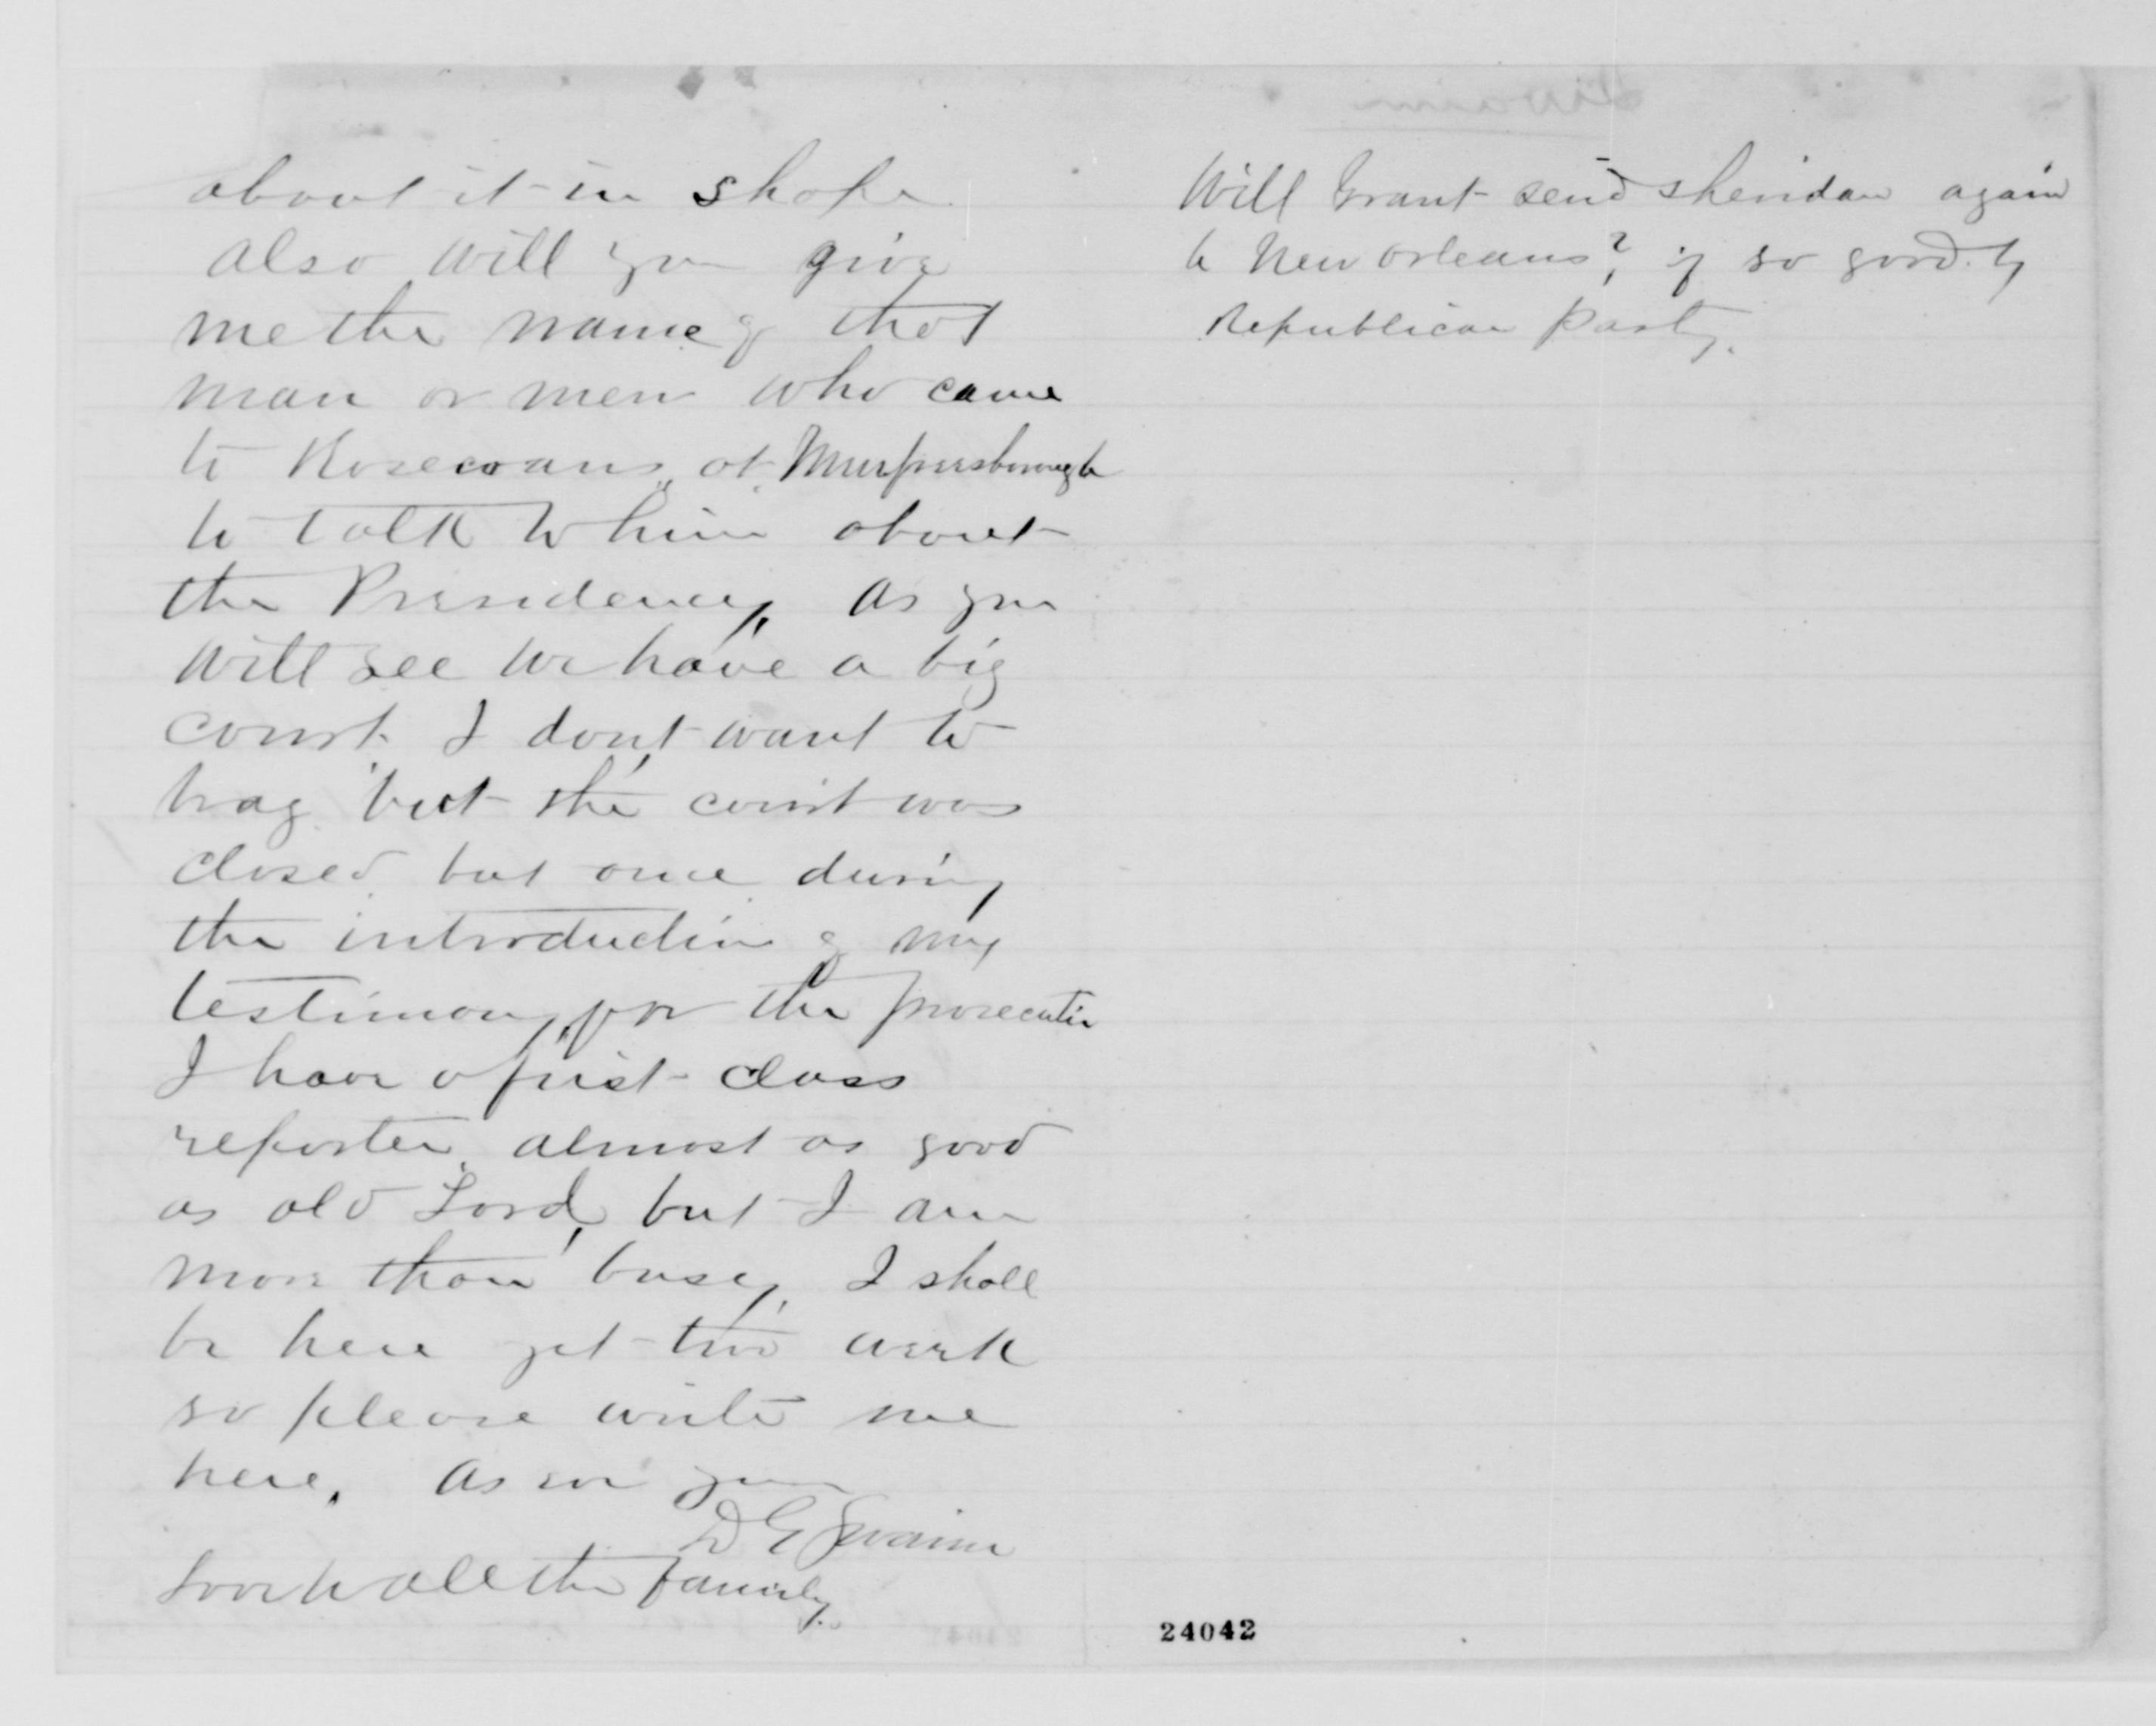 about it in shape
also will you give
me the name of that
man or men who came
to Rosecrans, at Murfreesborough
to talk to him about
the Presidency, As you
will see we have a big
court. I don't want to
brag but the court was
closed but once during
the introduction of my
testimony, for the prosecution
I have a first class
reporter, almost as good
as old Lord, but I am
more than busy, I shall
be here yet two week
so please write me
here. As ever your
D G Swaim
Love to all the family.
Will Grant send Sheridan again
to New Orleans? if so good by
Republican party.
24042